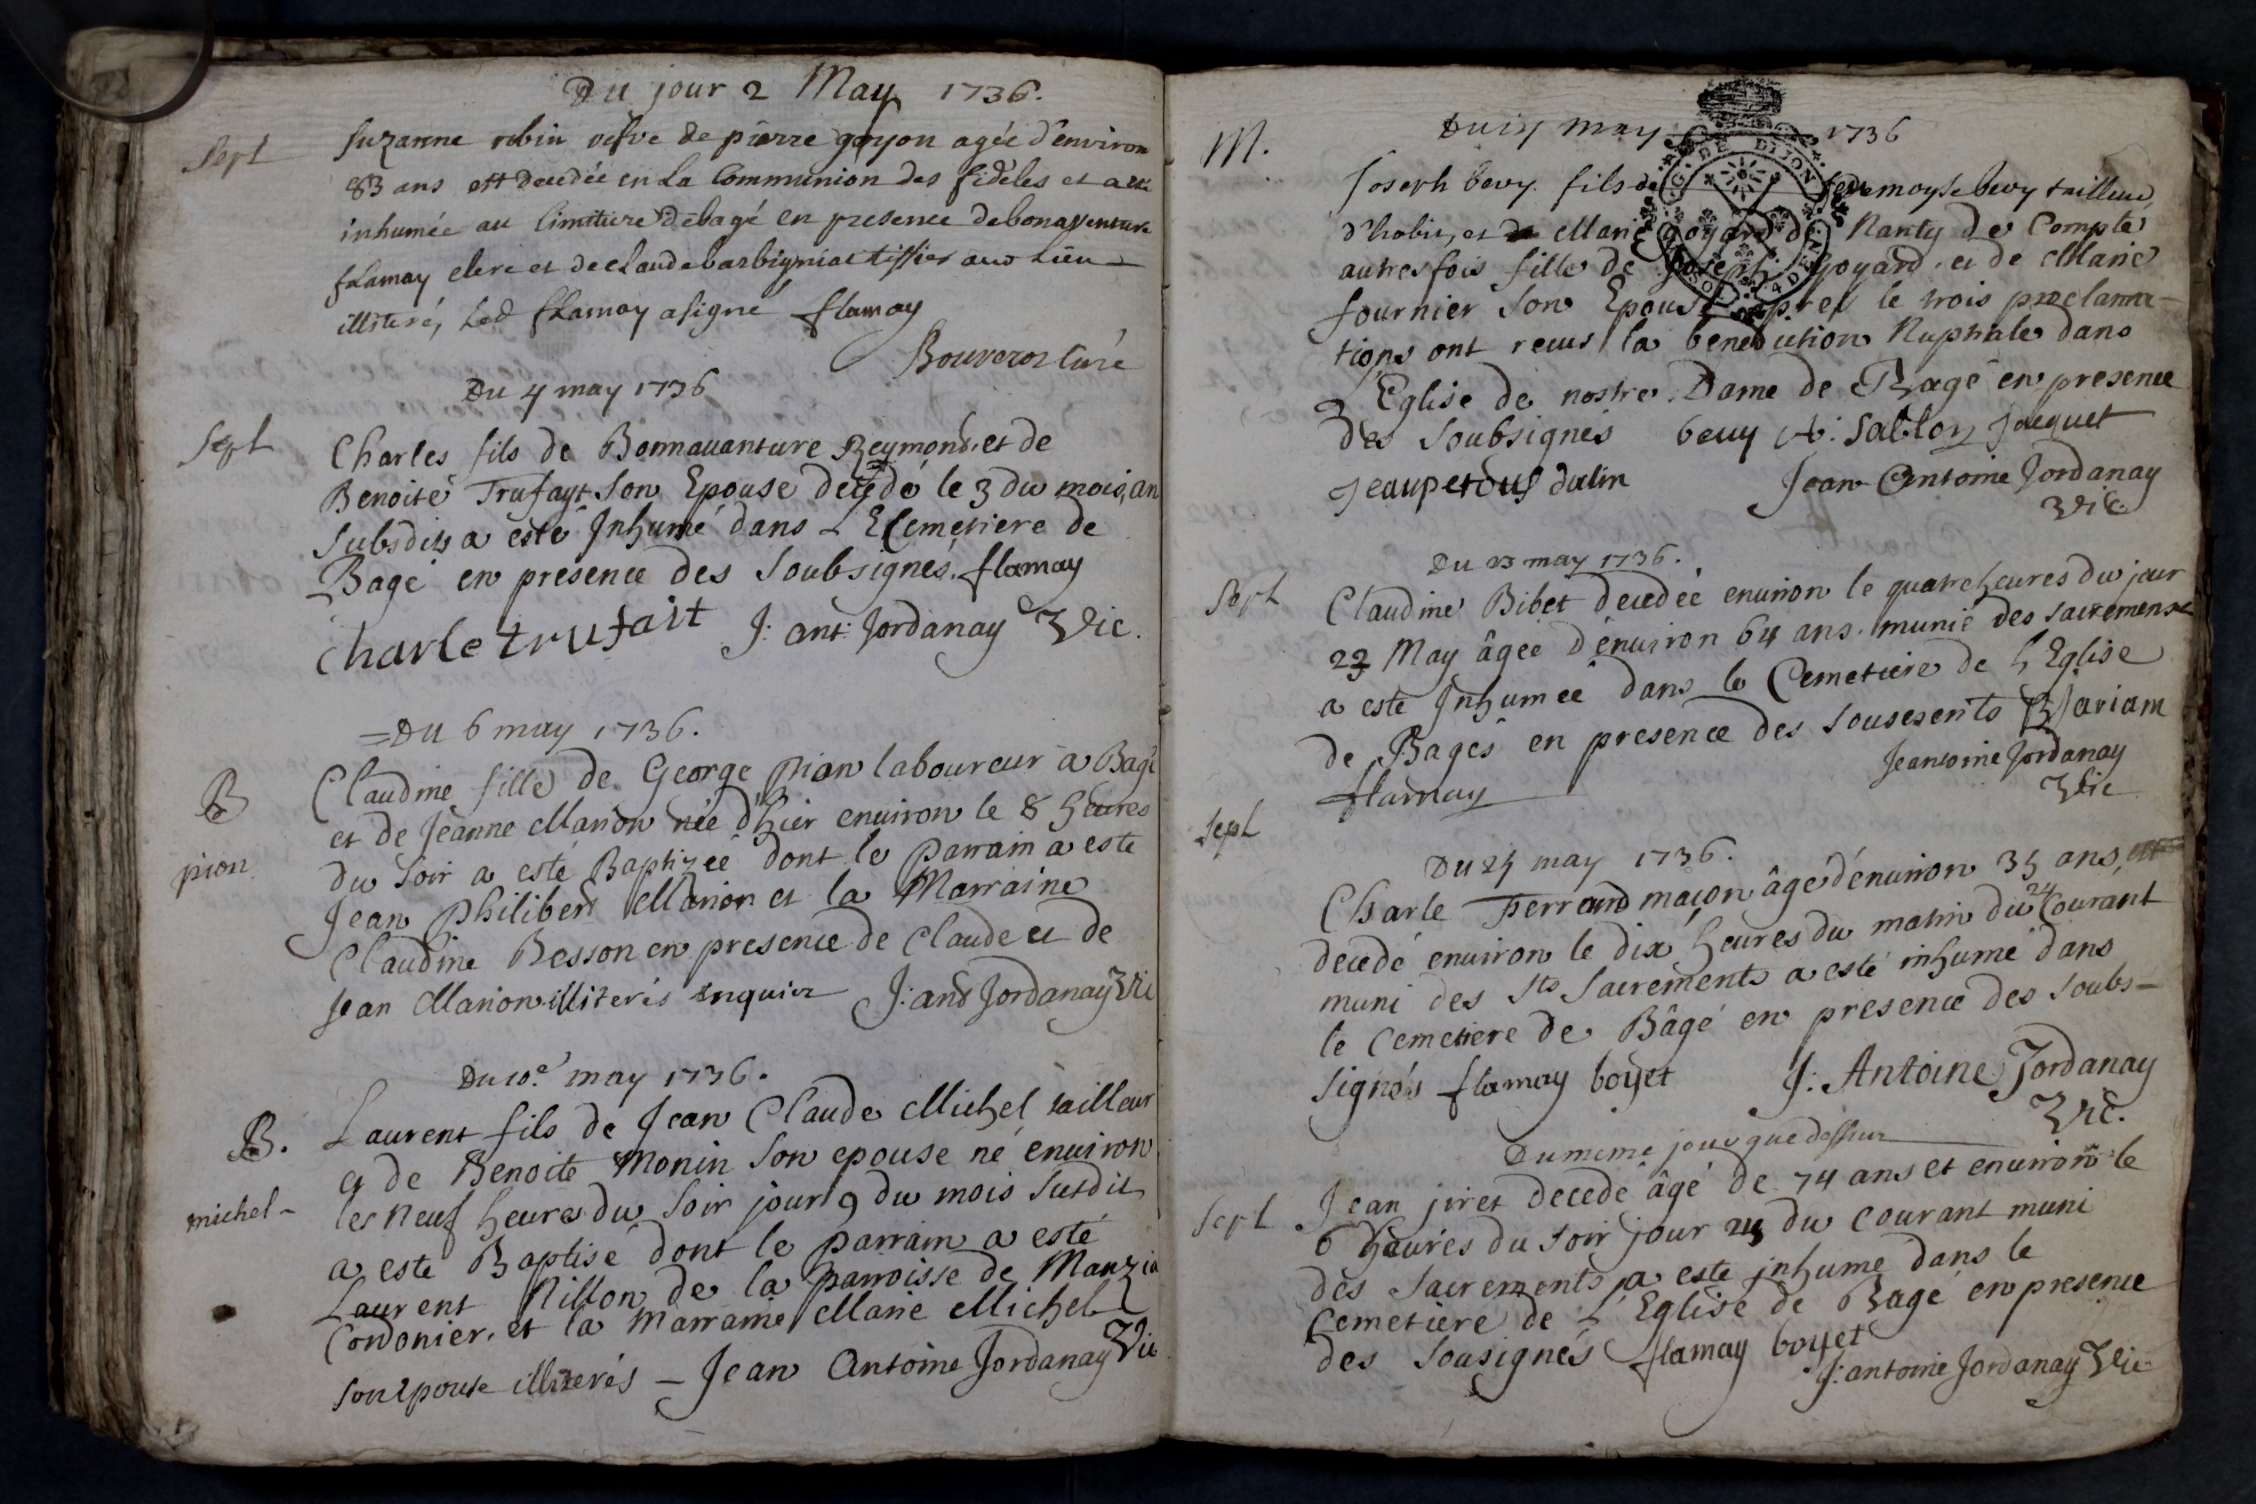 Du jour 2 May 1736.
Sept
suzanne robin vefve de pierre goyon agée d'environ
83 ans est decedée en La Communion des fideles et a été
inhumée au Cimitiere debagé en presence debonaventure
flamay clerc et declaude barbigniat tissier aud Lieu
illiteré, Led flamay a signé flamay
Bouveror Curé
Du 4 may 1736
Sept
Charles fils de Bonnauanture Reymond et de
Benoite Trufayt Son Epouse decedé le 3 du mois, an
Subsdits a esté Inhumé dans L Cemetiere de
Bagé en presence des Soubsignés. flamay
charle trufait J: ant: Jordanay Vic.
=Du 6 may 1736.
B
pion
Claudine fille de George Pion laboureur à Bagé
et de Jeanne Marion née d'hier enuiron le 8 heures
du Soir a esté Baptizeé dont le parrain a esté
Jean Philibert Marion et la Marraine
Claudine Besson en presence de Claude et de
Jean Marion illiterés enquis J: ant Jordanay Vic
Du 10.e may 1736.
B.
michel-
Laurent fils de Jean Claude Michel tailleur
et de Benoite Monin Son epouse né enuiron
les neuf heures du Soir jour 9 du mois Susdit
a esté Baptisé dont le parrain a esté
Laurent Nillon de la parroisse de Manzia
Cordonier, et la marraine Marie Michel
son epouse illiterés - Jean Antoine Jordanay Vic
M.
Du may 1736
Joseph bevy fils de de moyse bevy tailleur
d'habit, et Marie goyard de Nanty de Compte
autresfois fille de Joseph Goyard et de Marie
fournier Son Epouse apres le trois proclama-
tions ont recus la benediction Nuptiale dans
Eglise de nostre Dame de Bagé en presence
des Soubsignés beuy A: Jacquet
dulin Jean Antoine Jordanay
Vic.
Du 23 may 1736.
Sept
Claudine Bibet decedée enuiron le quatre heures du jour
22 May âgée d'enuiron 64 ans. munie des sacremens
a esté Inhumeé dans le Cemetiere de l'Eglise
de Bagés en presence des Mariam
flamay Jeantoine Jordanay
Vic
Sept
Du 25 may 1736.
Charle Ferrand maçon âgé d'enuiron 35 ans,
decedé enuiron le dix heures du matin du 24 Courant
muni des Sts Sacrements a esté inhumé dans
le Cemetiere de Bâgé en presence des Soubs-
signés flamay boyet J: Antoine Jordanay
Vic.
Du meme jour que dessus
Sept
Jean jiret decedé âgé de 74 ans et enuiron le
6 heures du Soir jour du Courant muni
des Sacrements a esté inhumé dans le
Cemetiere de L'Eglise de Bagé en presence
des Sousignés flamay boyet
J: antoine Jordanay Vic